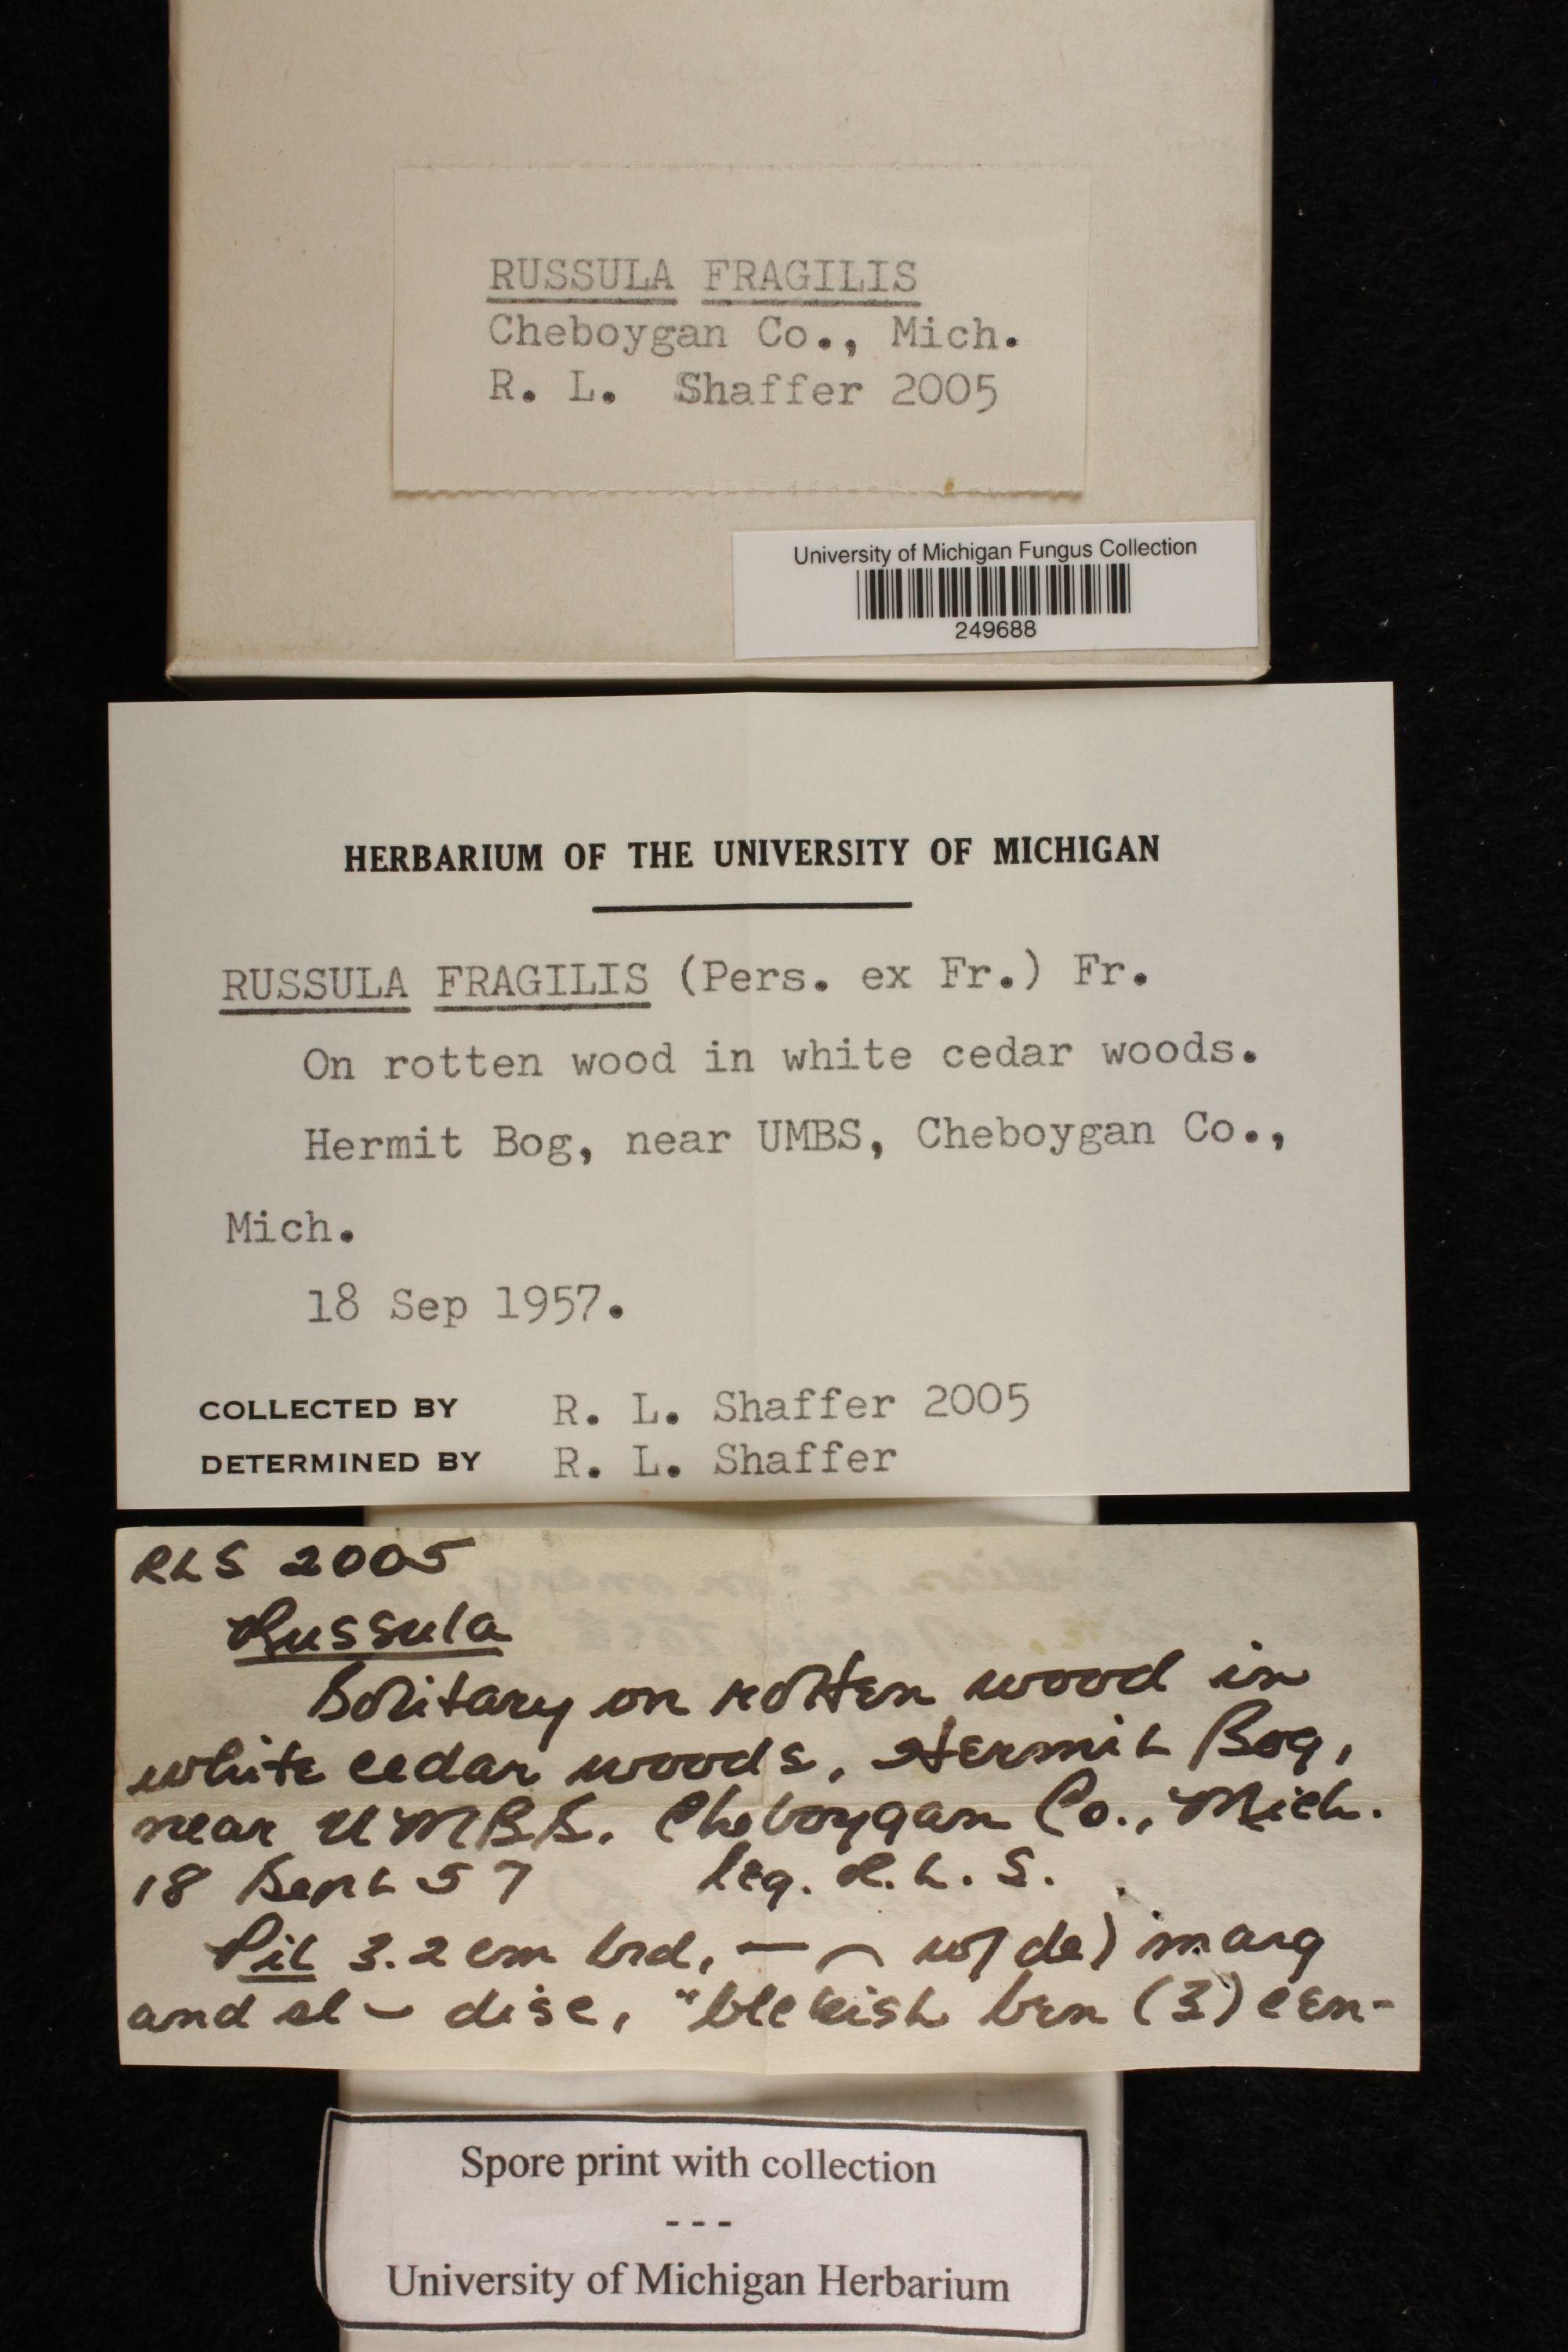 RUSSULA FRAGILIS
Cheboygan Co., Mich.
R. L. Shaffer 2005
University of Michigan Fungus Collection
249688
HERBARIUM OF THE UNIVERSITY OF MICHIGAN
RUSSULA FRAGILIS (Pers. ex Fr.) Fr.
On rotten wood in white cedar woods.
Hermit Bog, near UMBS, Cheboygan Co.,
Mich.
18 Sep 1957.
COLLECTED BY R. L. Shaffer 2005
DETERMINED BY R. L. Shaffer
RLS 2005
Russula
Solitary on rotten wood in
white cedar woods, Hermit Bog,
near UMBS. Cheboygan Co., Mich.
18 Sept 57 leg. R. L. S.
Pil 3.2 cm brd, — ⌒ w/ de) marg
and sl ⌣ disc, "blckish brn (3) cen-
Spore print with collection
---
University of Michigan Herbarium